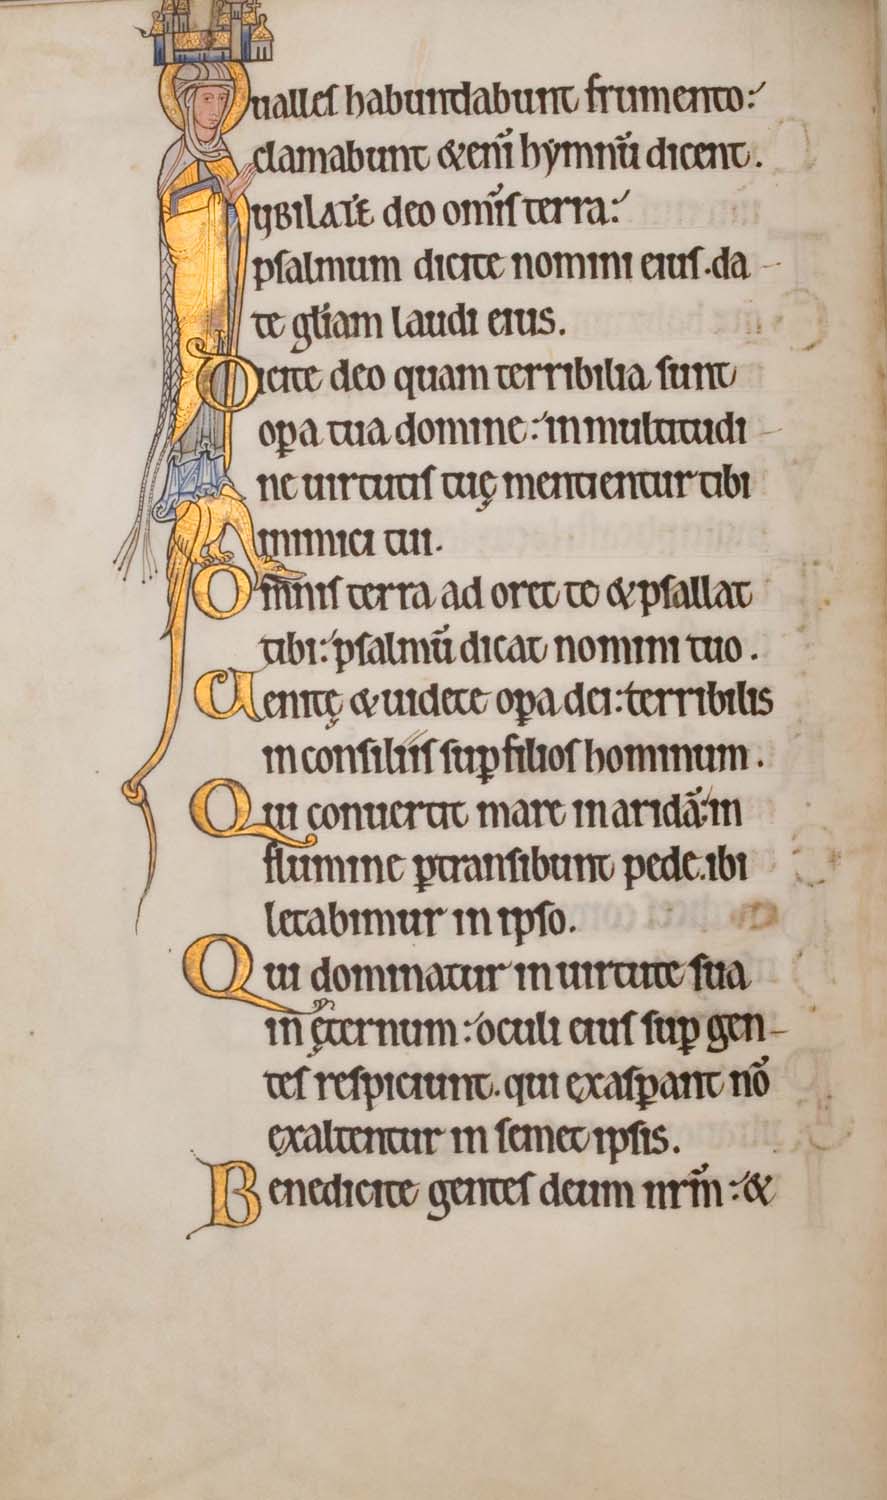 ualleſ habundabunt frumento:
clamabunt &eni̅ hẏmnu̅ dicent.
IUBILATE deo omi̅ſ terra:
pſalmum dicite nomini eiuſ. da-
te gl̅iam laudi eius.
Dicite deo quam terribilia ſunt
oꝑa tua domine: in multitudi-
ne uirtutiſ tuę mentientur tibi
inimici tui.
Om̅niſ terra ad oret te & pſallat
tibi: pſalmu̅ dicat nomini tuo.
Uenitę & uidete oꝑa dei: terribilis
in conſiliiſ ſuꝑ filioſ hominum.
Qui conuertit mare in arida̅: in
flumine ꝑtranſibunt pede. ibi
letabimur in ipſo.
Qui dominatur in uirtute ſua
in ęternum: oculi eiuſ ſuꝑ gen-
teſ reſpiciunt. qui exaſꝑant no̅
exaltentur in ſemet ipſis.
Benedicite genteſ deum nrm̅: &